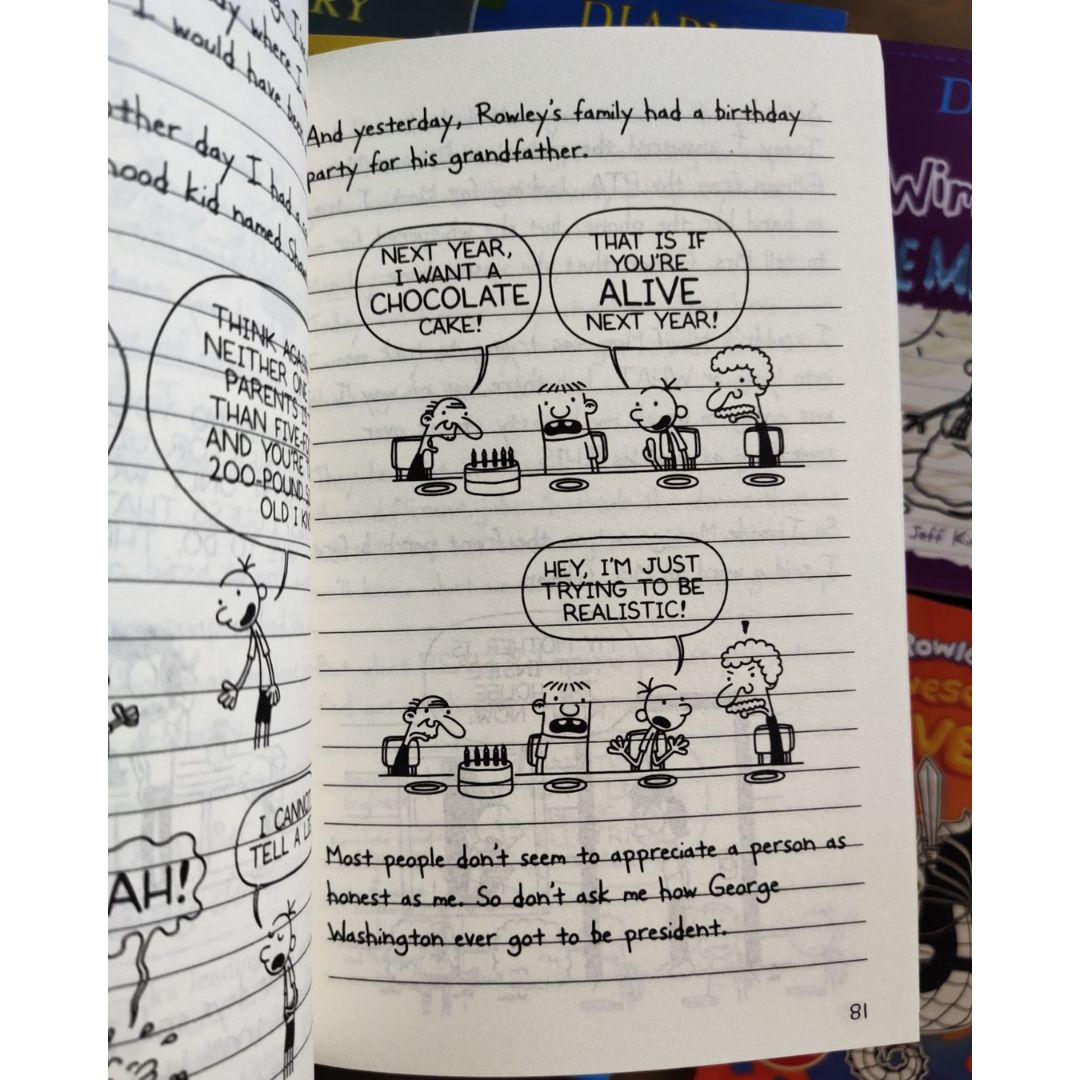 RY
DIARY
I would have been
ther day I had a
hood kid named
THINK AGAIN
NEITHER ONE
PARENTS IS
THAN FIVE-
AND YOU'RE
200-POUND
OLD I
I CANNOT
TELL A LIE
AH!
And yesterday, Rowley's family had a birthday
party for his grandfather.
NEXT YEAR,
I WANT A
CHOCOLATE
CAKE!
THAT IS IF
YOU'RE
ALIVE
NEXT YEAR!
HEY, I'M JUST
TRYING TO BE
REALISTIC!
Most people don't seem to appreciate a person as
honest as me. So don't ask me how George
Washington ever got to be president.
81
D
Wim
Jeff Ki
Rowle